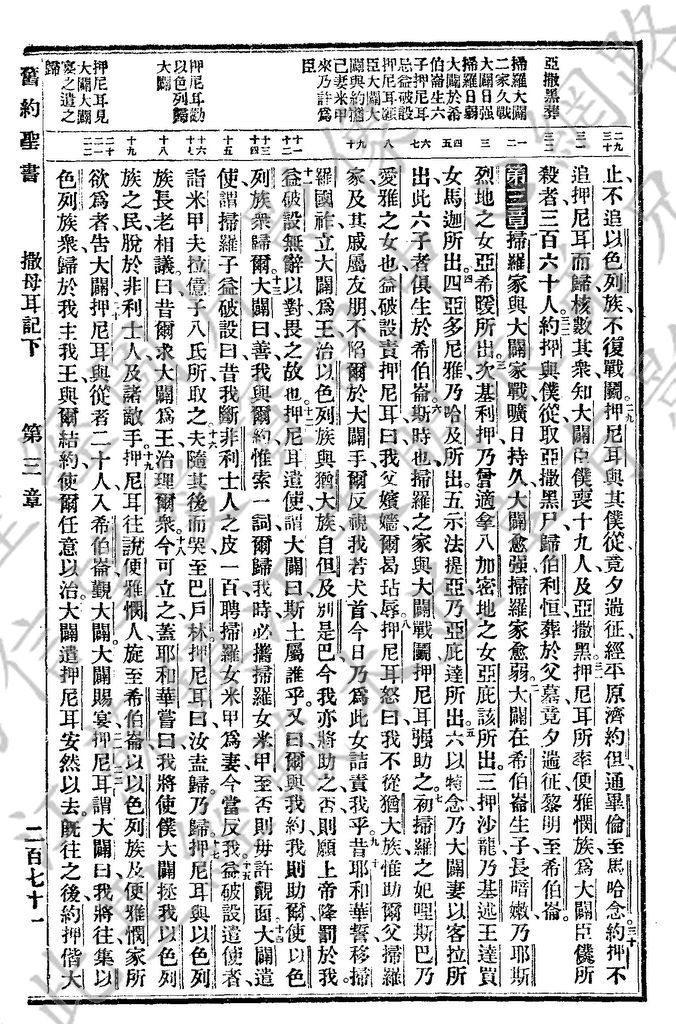 亞撒黑葬
掃羅大闢
二家久戰
大闢日强
掃羅日弱
大闢於希
伯崙生六
子押尼耳
忌益破設
押尼耳願
臣大闢大
闢與約
己妻米甲
來乃許爲
臣
押尼耳勸
以色列歸
大闢
押尼耳見
大闢大闢
宴之遣之
歸
止不追以色列族不復戰鬭二九押尼耳與其僕從竟夕遄征經平原濟約但通畢倫至馬哈念三十約押不
追押尼耳而歸核數其衆知大闢臣僕喪十九人及亞撒黑三一押尼耳所率便雅憫族爲大闢臣僕所
殺者三百六十人三二約押與僕從取亞撒黑尸歸伯利恒葬於父墓竟夕遄征黎明至希伯崙
第三章一掃羅家與大闢家戰曠日持久大闢愈強掃羅家愈弱二大闢在希伯崙生子長暗嫩乃耶斯
烈地之女亞希暖所出三次基利押乃曾適拿八加密地之女亞庇該所出三押沙龍乃基述王達買
女馬迦所出四四亞多尼雅乃哈及所出五示法提亞乃亞庇達所出五六以特念乃大闢妻以客拉所
出此六子者俱生於希伯崙六斯時也掃羅之家與大闢戰鬭押尼耳强助之七初掃羅之妃哩斯巴乃
愛雅之女也益破設責押尼耳曰我父嬪嬬爾曷玷辱八押尼耳怒曰我不從猶大族惟助爾父掃羅
家及其戚屬友朋不陷爾於大闢手爾反視我若犬首今日乃爲此女詰責我乎九昔耶和華誓移掃十
羅國祚立大闢爲王治以色列族與猶大族自但及別是巴今我亦將助之否則願上帝降罰於我
十一益破設無辭以對畏之故也十二押尼耳遣使謂大闢曰斯土屬誰乎又曰爾與我約我則助爾使以色
列族衆歸爾十三大闢曰善我與爾約惟索一詞爾歸我時必攜掃羅女米甲至否則毋許覿面十四大闢遣
使謂掃羅子益破設曰昔我斷非利士人之皮一百聘掃羅女米甲爲妻今當反我十五益破設遣使者
詣米甲夫拉億子八氏所取之十六夫隨其後而哭至巴戶林押尼耳曰汝盍歸乃歸十七押尼耳與以色列
族長老相議曰昔爾求大闢爲王治理爾衆十八今可立之蓋耶和華嘗曰我將使僕大闢拯我以色列
族之民脫於非利士人及諸敵手十九押尼耳往說便雅憫人旋至希伯崙以以色列族及便雅憫家所
欲爲者告大闢二十押尼耳與從者二十人入希伯崙覲大闢大闢賜宴二一押尼耳謂大闢曰我將往集以
色列族衆歸於我主我王與爾結約使爾任意以治大闢遣押尼耳安然以去二二旣往之後約押偕大
舊約聖書　撒母耳記下　第三章　二百七十一